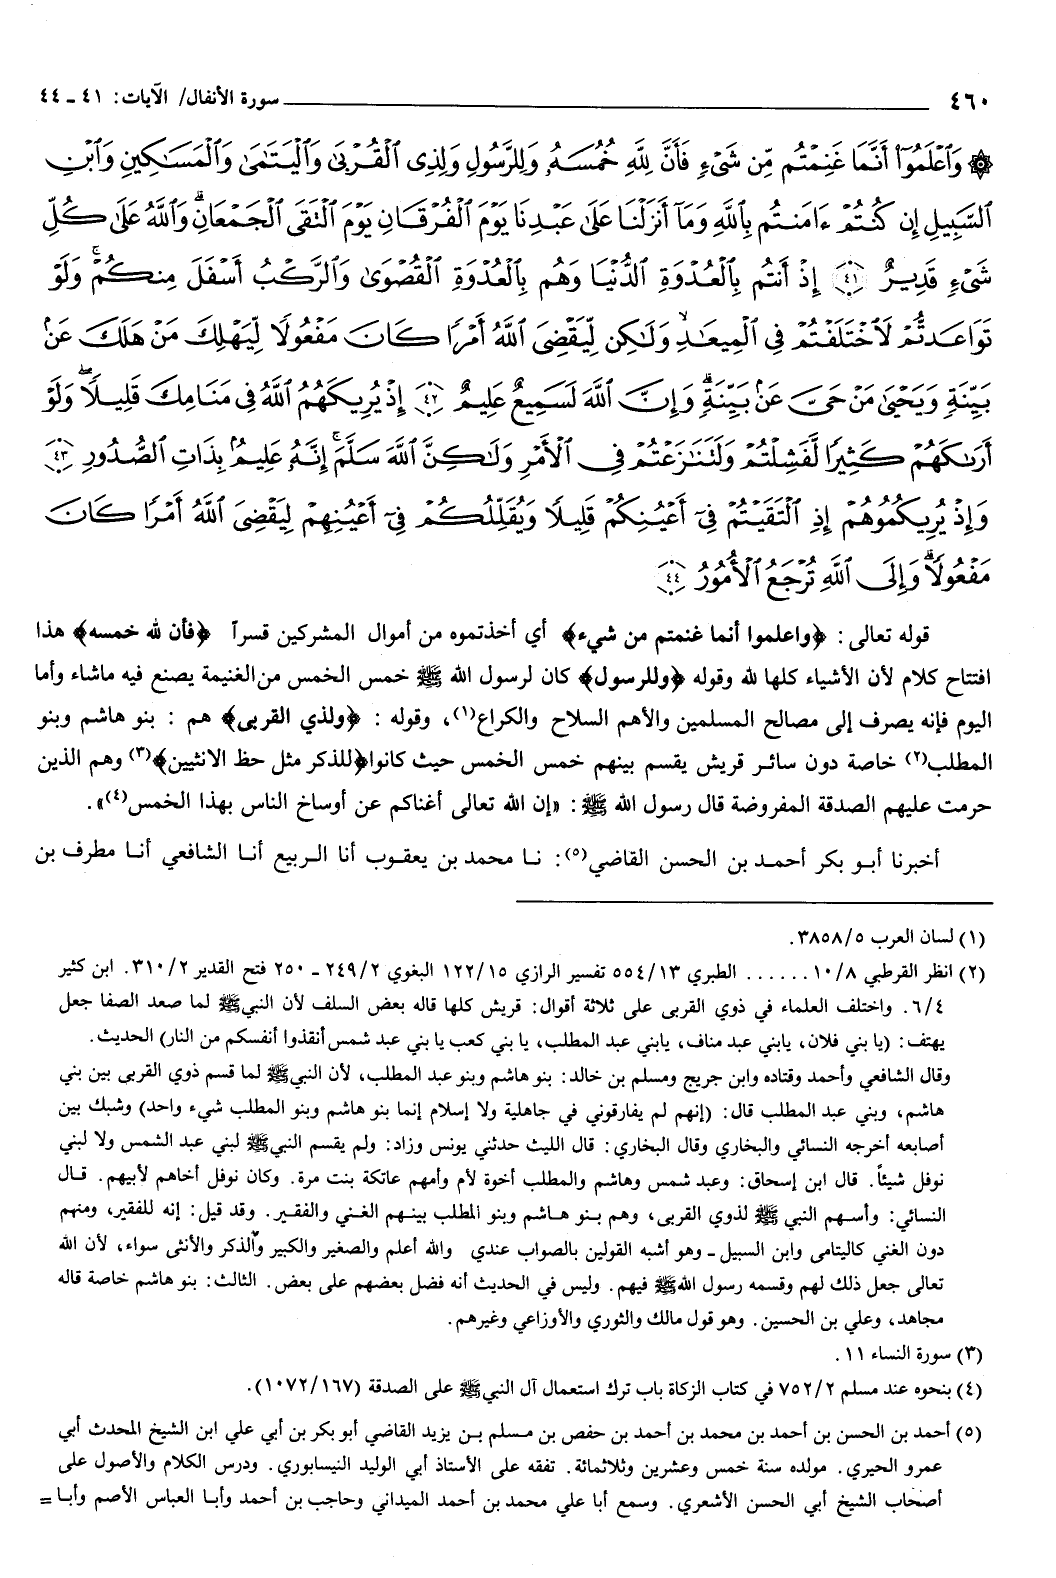 ٤٦٠ سورة الأنفال/ الآيات: ٤١ - ٤٤
۞ وَٱعْلَمُوٓا۟ أَنَّمَا غَنِمْتُم مِّن شَىْءٍ فَأَنَّ لِلَّهِ خُمُسَهُۥ وَلِلرَّسُولِ وَلِذِى ٱلْقُرْبَىٰ وَٱلْيَتَٰمَىٰ وَٱلْمَسَٰكِينِ وَٱبْنِ
ٱلسَّبِيلِ إِن كُنتُمْ ءَامَنتُم بِٱللَّهِ وَمَآ أَنزَلْنَا عَلَىٰ عَبْدِنَا يَوْمَ ٱلْفُرْقَانِ يَوْمَ ٱلْتَقَى ٱلْجَمْعَانِ ۗ وَٱللَّهُ عَلَىٰ كُلِّ
شَىْءٍ قَدِيرٌ ﴿٤١﴾ إِذْ أَنتُم بِٱلْعُدْوَةِ ٱلدُّنْيَا وَهُم بِٱلْعُدْوَةِ ٱلْقُصْوَىٰ وَٱلرَّكْبُ أَسْفَلَ مِنكُمْ ۚ وَلَوْ
تَوَاعَدتُّمْ لَٱخْتَلَفْتُمْ فِى ٱلْمِيعَٰدِ ۙ وَلَٰكِن لِّيَقْضِىَ ٱللَّهُ أَمْرًا كَانَ مَفْعُولًا لِّيَهْلِكَ مَنْ هَلَكَ عَنۢ
بَيِّنَةٍ وَيَحْيَىٰ مَنْ حَىَّ عَنۢ بَيِّنَةٍ ۗ وَإِنَّ ٱللَّهَ لَسَمِيعٌ عَلِيمٌ ﴿٤٢﴾ إِذْ يُرِيكَهُمُ ٱللَّهُ فِى مَنَامِكَ قَلِيلًا ۖ وَلَوْ
أَرَىٰكَهُمْ كَثِيرًا لَّفَشِلْتُمْ وَلَتَنَٰزَعْتُمْ فِى ٱلْأَمْرِ وَلَٰكِنَّ ٱللَّهَ سَلَّمَ ۗ إِنَّهُۥ عَلِيمٌۢ بِذَاتِ ٱلصُّدُورِ ﴿٤٣﴾
وَإِذْ يُرِيكُمُوهُمْ إِذِ ٱلْتَقَيْتُمْ فِىٓ أَعْيُنِكُمْ قَلِيلًا وَيُقَلِّلُكُمْ فِىٓ أَعْيُنِهِمْ لِيَقْضِىَ ٱللَّهُ أَمْرًا كَانَ
مَفْعُولًا ۗ وَإِلَى ٱللَّهِ تُرْجَعُ ٱلْأُمُورُ ﴿٤٤﴾
قوله تعالى: ﴿واعلموا أنما غنمتم من شيء﴾ أي أخذتموه من أموال المشركين قسراً ﴿فأن لله خمسه﴾ هذا
افتتاح كلام لأن الأشياء كلها لله وقوله ﴿وللرسول﴾ كان لرسول الله ﷺ خمس الخمس من الغنيمة يصنع فيه ماشاء وأما
اليوم فإنه يصرف إلى مصالح المسلمين والأهم السلاح والكراع(١)، وقوله: ﴿ولذي القربى﴾ هم: بنو هاشم وبنو
المطلب(٢) خاصة دون سائر قريش يقسم بينهم خمس الخمس حيث كانوا﴿للذكر مثل حظ الانثيين﴾(٣) وهم الذين
حرمت عليهم الصدقة المفروضة قال رسول الله ﷺ: «إن الله تعالى أغناكم عن أوساخ الناس بهذا الخمس(٤)».
أخبرنا أبو بكر أحمد بن الحسن القاضي(٥): نا محمد بن يعقوب أنا الربيع أنا الشافعي أنا مطرف بن
(١) لسان العرب ٣٨٥٨/٥.
(٢) انظر القرطبي ١٠/٨ ...... الطبري ٥٥٤/١٣ تفسير الرازي ١٢٢/١٥ البغوي ٢٤٩/٢ - ٢٥٠ فتح القدير ٣١٠/٢. ابن كثير
٦/٤. واختلف العلماء في ذوي القربى على ثلاثة أقوال: قريش كلها قاله بعض السلف لأن النبيﷺ لما صعد الصفا جعل
يهتف: (يا بني فلان، يابني عبد مناف، يابني عبد المطلب، يا بني كعب يا بني عبد شمس أنقذوا أنفسكم من النار) الحديث.
وقال الشافعي وأحمد وقتاده وابن جريج ومسلم بن خالد: بنو هاشم وبنو عبد المطلب، لأن النبيﷺ لما قسم ذوي القربى بين بني
هاشم، وبني عبد المطلب قال: (إنهم لم يفارقوني في جاهلية ولا إسلام إنما بنو هاشم وبنو المطلب شيء واحد) وشبك بين
أصابعه أخرجه النسائي والبخاري وقال البخاري: قال الليث حدثني يونس وزاد: ولم يقسم النبيﷺ لبني عبد الشمس ولا لبني
نوفل شيئاً. قال ابن إسحاق: وعبد شمس وهاشم والمطلب أخوة لأم وأمهم عاتكة بنت مرة. وكان نوفل أخاهم لأبيهم. قال
النسائي: وأسهم النبي ﷺ لذوي القربى، وهم بنو هاشم وبنو المطلب بينهم الغني والفقير. وقد قيل: إنه للفقير، ومنهم
دون الغني كاليتامى وابن السبيل - وهو أشبه القولين بالصواب عندي والله أعلم والصغير والكبير والذكر والأنثى سواء، لأن الله
تعالى جعل ذلك لهم وقسمه رسول اللهﷺ فيهم. وليس في الحديث أنه فضل بعضهم على بعض. الثالث: بنو هاشم خاصة قاله
مجاهد، وعلي بن الحسين. وهو قول مالك والثوري والأوزاعي وغيرهم.
(٣) سورة النساء ١١.
(٤) بنحوه عند مسلم ٧٥٢/٢ في كتاب الزكاة باب ترك استعمال آل النبيﷺ على الصدقة (١٠٧٢/١٦٧).
(٥) أحمد بن الحسن بن أحمد بن محمد بن أحمد بن حفص بن مسلم بن يزيد القاضي أبو بكر بن أبي علي ابن الشيخ المحدث أبي
عمرو الحيري. مولده سنة خمس وعشرين وثلاثمائة. تفقه على الأستاذ أبي الوليد النيسابوري. ودرس الكلام والأصول على
أصحاب الشيخ أبي الحسن الأشعري. وسمع أبا علي محمد بن أحمد الميداني وحاجب بن أحمد وأبا العباس الأصم وأبا =